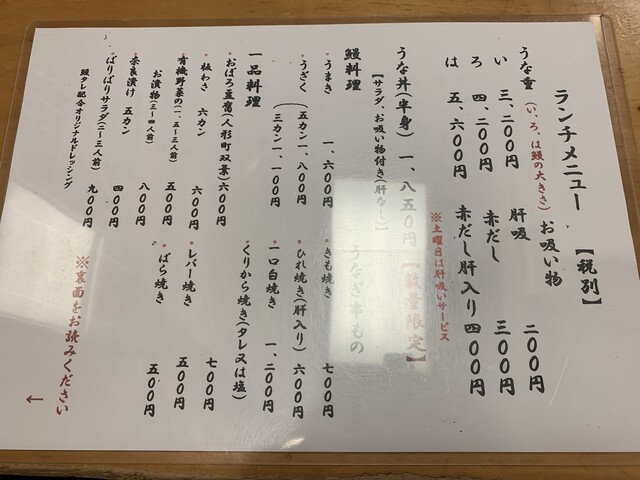 ランチメニュー 【税別】
うな重(い、ろ、は鰻の大きさ)
い 三、二〇〇円
ろ 四、二〇〇円
は 五、六〇〇円
お吸い物
肝吸 二〇〇円
赤だし 三〇〇円
赤だし肝入り 四〇〇円
※土曜日は肝吸いサービス
うな丼(半身) 一、八五〇円 【数量限定】
【サラダ、お吸い物付き(肝なし)】
鰻料理
・うまき 一、六〇〇円
・うざく (五カン一、八〇〇円
三カン一、一〇〇円
一品料理
・おぼろ豆腐(人形町双葉)六〇〇円
・板わさ 六カン 六〇〇円
・有機野菜の(一、五〜三人前) 五〇〇円
お漬物(三〜四人前) 八〇〇円
・奈良漬け 五カン 四〇〇円
・ぱりぱりサラダ(二〜三人前) 九〇〇円
鰻タレ配合オリジナルドレッシング
うなぎ串もの
・きも焼き 七〇〇円
・ひれ焼き(肝入り) 六〇〇円
・一口白焼き 一、二〇〇円
・くりから焼き(タレ又は塩)
七〇〇円
・レバー焼き 五〇〇円
・ばら焼き 五〇〇円
※裏面をお読みください
←